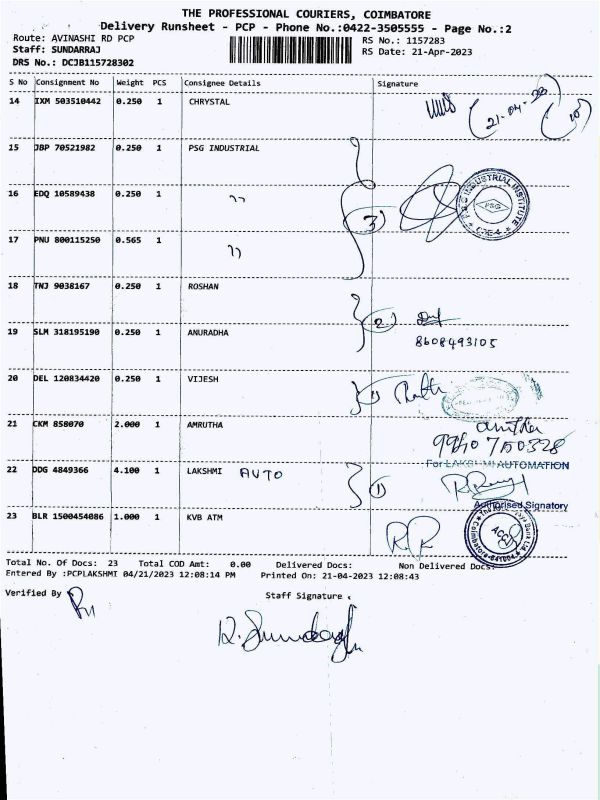 THE PROFESSIONAL COURIERS, COIMBATORE
Delivery Runsheet - PCP - Phone No.:0422-3505555 - Page No.:2
Route: AVINASHI RD PCP RS No.: 1157283
Staff: SUNDARRAJ RS Date: 21-Apr-2023
DRS No.: DCJB115728302
S No Consignment No Weight PCS Consignee Details Signature
14 IXM 503510442 0.250 1 CHRYSTAL
21-04-23
15 JBP 70521982 0.250 1 PSG INDUSTRIAL
16 EDQ 10589438 0.250 1 ,,
3
PSG INDUSTRIAL INSTITUTE
PSG
17 PNU 800115250 0.565 1 ,,
18 TNJ 9038167 0.250 1 ROSHAN
2
19 SLM 318195190 0.250 1 ANURADHA
8608493105
20 DEL 120834420 0.250 1 VIJESH
1
21 CKM 858070 2.000 1 AMRUTHA
anitha
22 DDG 4849366 4.100 1 LAKSHMI AUTO
1
For LAKSHMI AUTOMATION
Authorised Signatory
23 BLR 1500454086 1.000 1 KVB ATM
Total No. Of Docs: 23 Total COD Amt: 0.00 Delivered Docs: Non Delivered Docs:
Entered By :PCPLAKSHMI 04/21/2023 12:08:14 PM Printed On: 21-04-2023 12:08:43
Verified By Staff Signature :